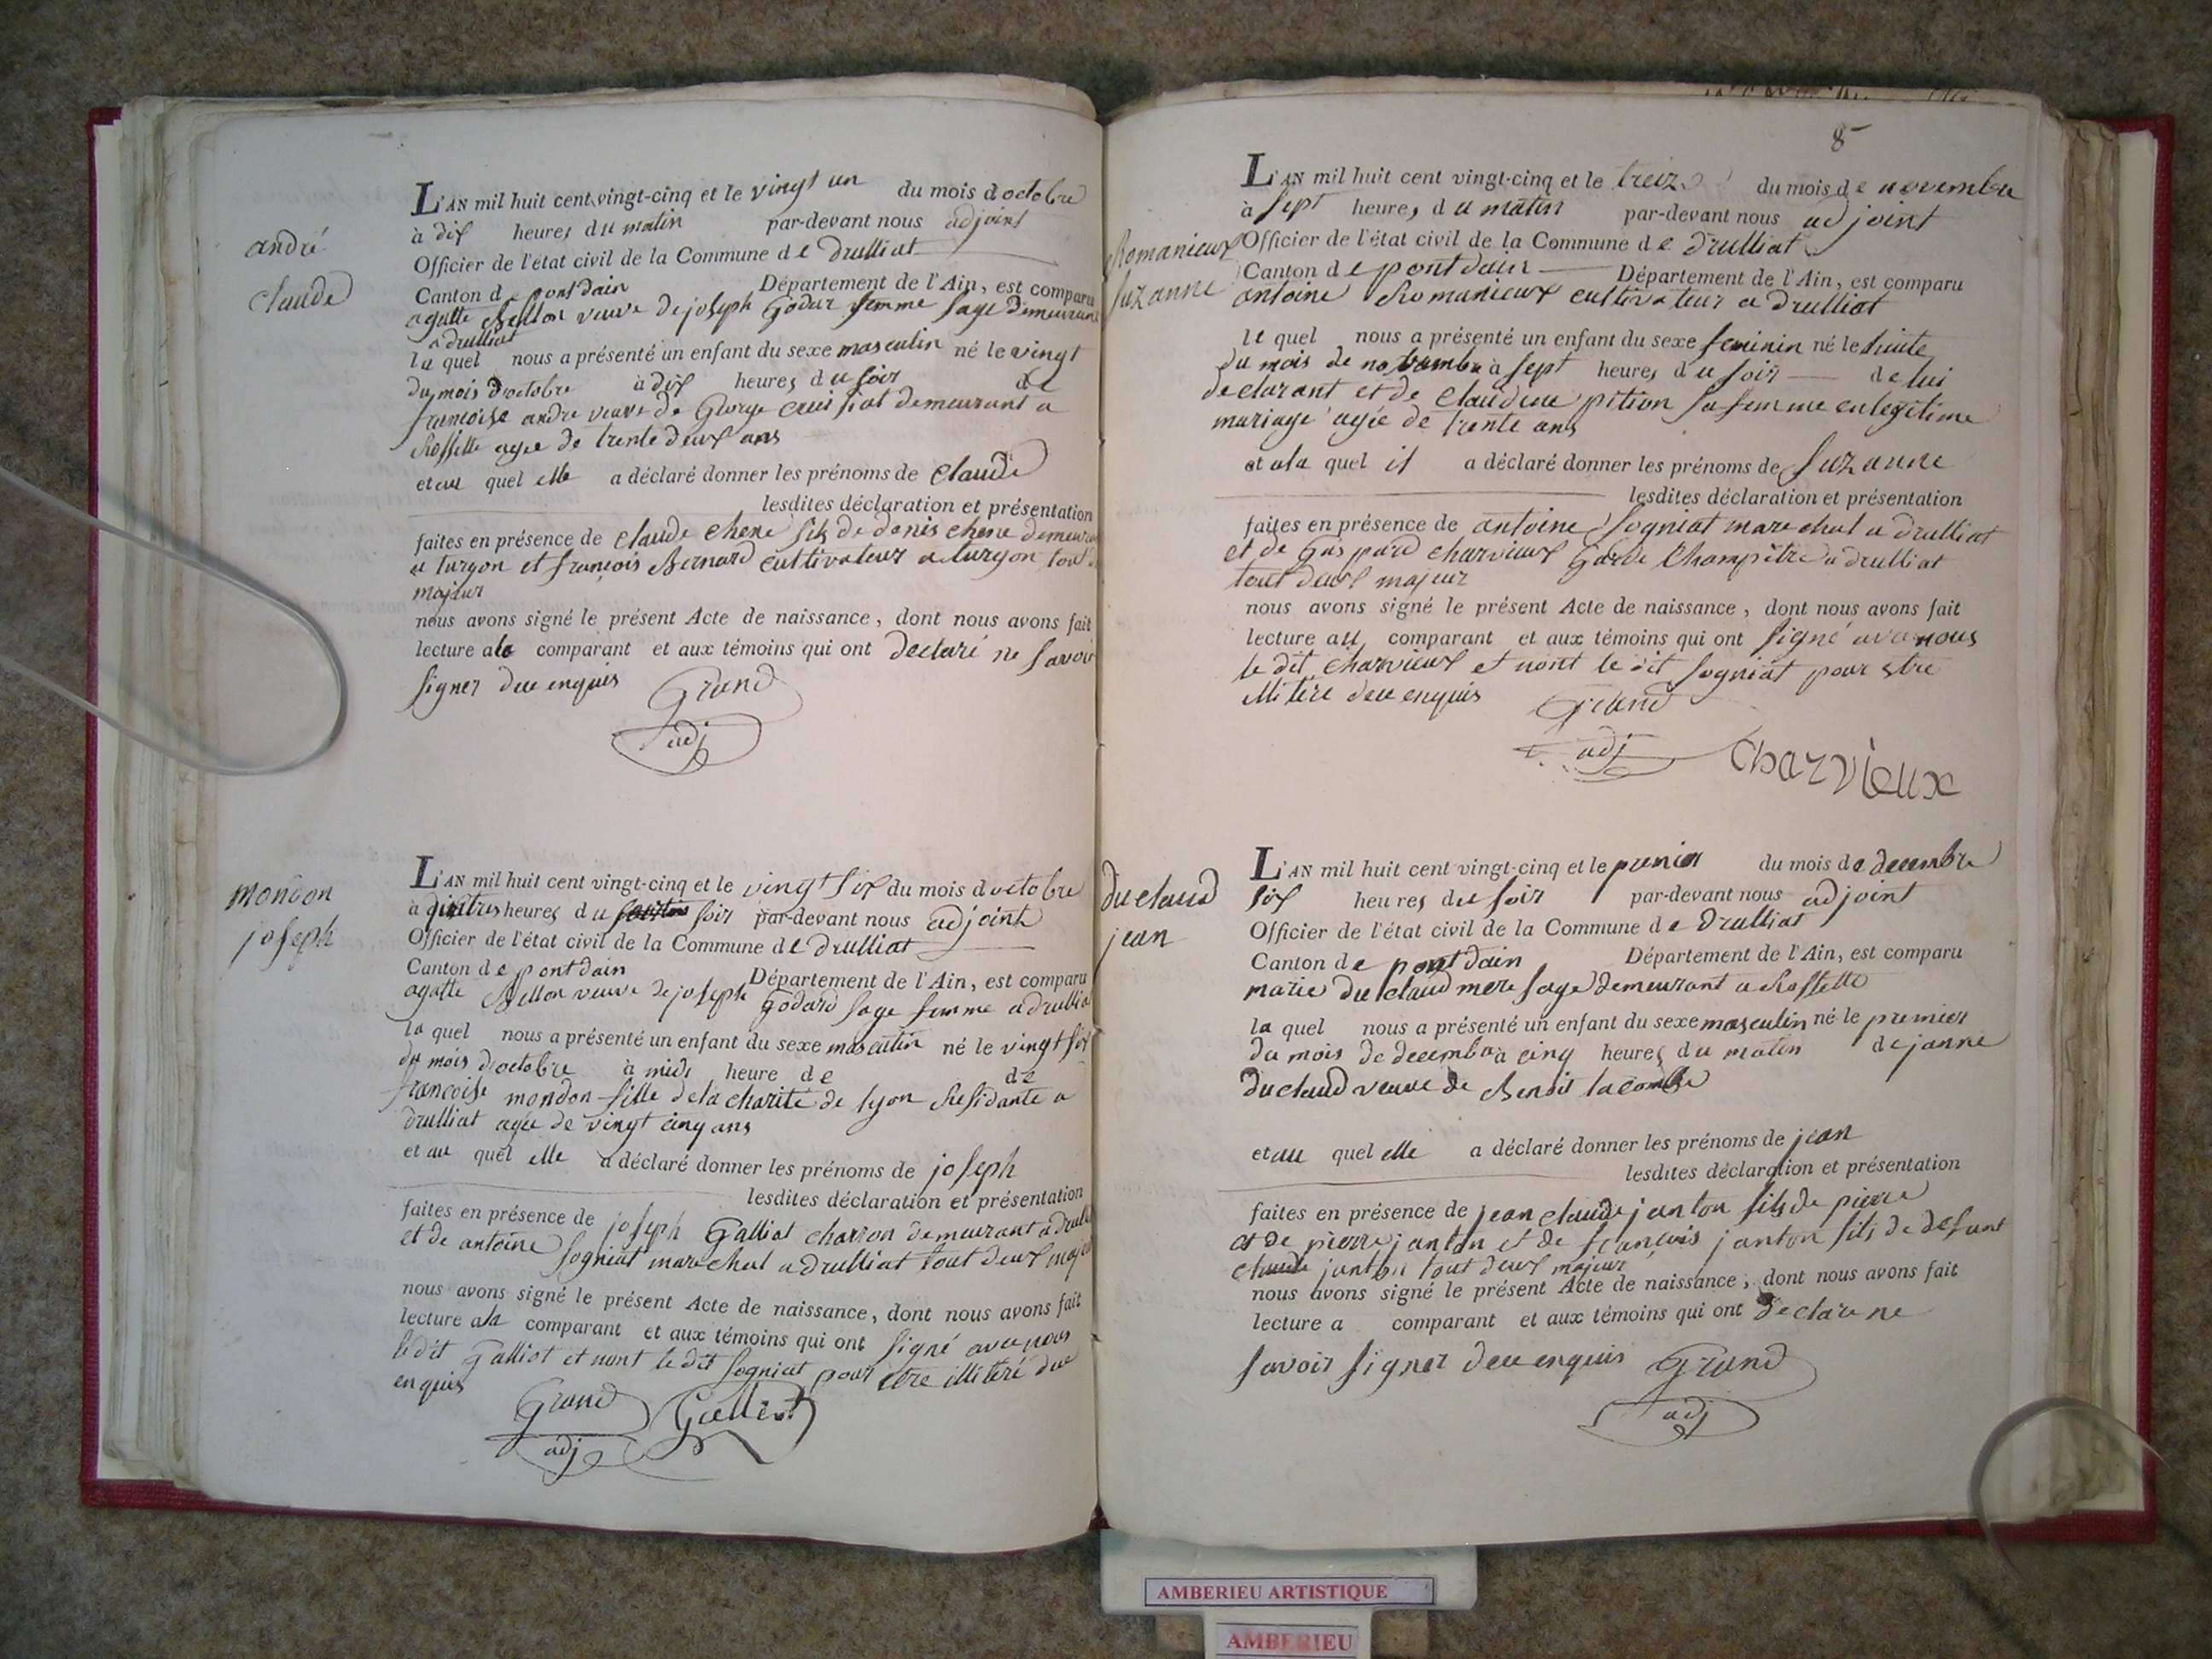 andré
claude
L'AN mil huit cent vingt-cinq et le vingt un du mois d octobre
à dix heures du matin par-devant nous adjoint
Officier de l'état civil de la Commune de Drulliat
Canton de pontdain Département de l'Ain, est comparu
agatte Bellon veuve de joseph Godar femme sage demeurant
a drulliat
la quel nous a présenté un enfant du sexe masculin né le vingt
du mois d'octobre à dix heures du soir de
francoise andre veuve de George demeurant a
Rossette agee de trente deux ans
et au quel elle a déclaré donner les prénoms de Claude
lesdites déclaration et présentation
faites en présence de claude chene fils de denis chene
a turgon et françois Bernard cultivateur a turgon tout
majeur
nous avons signé le présent Acte de naissance, dont nous avons fait
lecture ala comparant et aux témoins qui ont declaré ne savoir
signer deu enquis Grand
adj
mondon
joseph
L'AN mil huit cent vingt-cinq et le vingt six du mois d octobre
à heures du soir par-devant nous adjoint
Officier de l'état civil de la Commune de Drulliat
Canton de pontdain Département de l'Ain, est comparu
agatte Bellon veuve de joseph Godard sage femme a drullia
la quel nous a présenté un enfant du sexe masculin né le vingt six
du mois d'octobre à midi heure de de
francoise mondon fille de la charité de lyon Residante a
drulliat agée de vingt cinq ans
et au quel elle a déclaré donner les prénoms de joseph
lesdites déclaration et présentation
faites en présence de joseph Galliot charron demeurant a
et de antoine sogniat marechal a drulliat tout deux
nous avons signé le présent Acte de naissance, dont nous avons fait
lecture ala comparant et aux témoins qui ont signé avec nous
le dit Galliot et nont le dit sogniat pour etre illitéré due
enquis Grand Galliot
adj
8
Romanieux
suzanne
L'AN mil huit cent vingt-cinq et le treize du mois de novembre
à sept heures du matin par-devant nous adjoint
Officier de l'état civil de la Commune de drulliat
Canton de pont dain Département de l'Ain, est comparu
antoine Romanieux cultivateur a Drulliat
le quel nous a présenté un enfant du sexe feminin né le
du mois de novembre à sept heures du soir de lui
declarant et de Claudine pition sa femme en legitime
mariage agée de trente ans
et ala quel il a déclaré donner les prénoms de Suzanne
lesdites déclaration et présentation
faites en présence de antoine sogniat marechal a drulliat
et de Gaspard charvieux Garde Champêtre a drulliat
tout deux majeur
nous avons signé le présent Acte de naissance, dont nous avons fait
lecture au comparant et aux témoins qui ont signé avec nous
le dit charvieux et nont le dit sogniat pour etre
illitere deu enquis Grand
adj Charvieux
duclaud
jean
L'AN mil huit cent vingt-cinq et le premier du mois de decembre
six heures du soir par-devant nous adjoint
Officier de l'état civil de la Commune de Drulliat
Canton de pont dain Département de l'Ain, est comparu
marie duclaud mere sage demeurant a Rossette
la quel nous a présenté un enfant du sexe masculin né le premier
du mois de decembre à cinq heures du matin de janne
duclaud veuve de Benoit lacombe
et au quel elle a déclaré donner les prénoms de jean
lesdites déclaration et présentation
faites en présence de jean claude janton fils de pierre
et de pierre janton et de francois janton fils de defunt
claude janton tout deux majeur
nous avons signé le présent Acte de naissance, dont nous avons fait
lecture a comparant et aux témoins qui ont declare ne
savoir signer deu enquis Grand
adj
AMBERIEU ARTISTIQUE
AMBERIEU